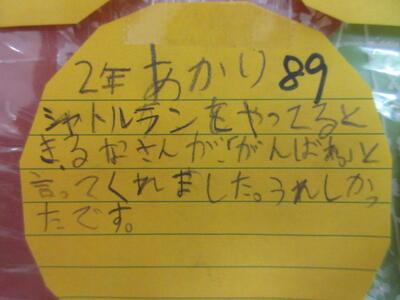 2年 あかり 89
シャトルランをやってると
き、るなさんが、「がんばれ」と
言ってくれました。うれしかっ
たです。